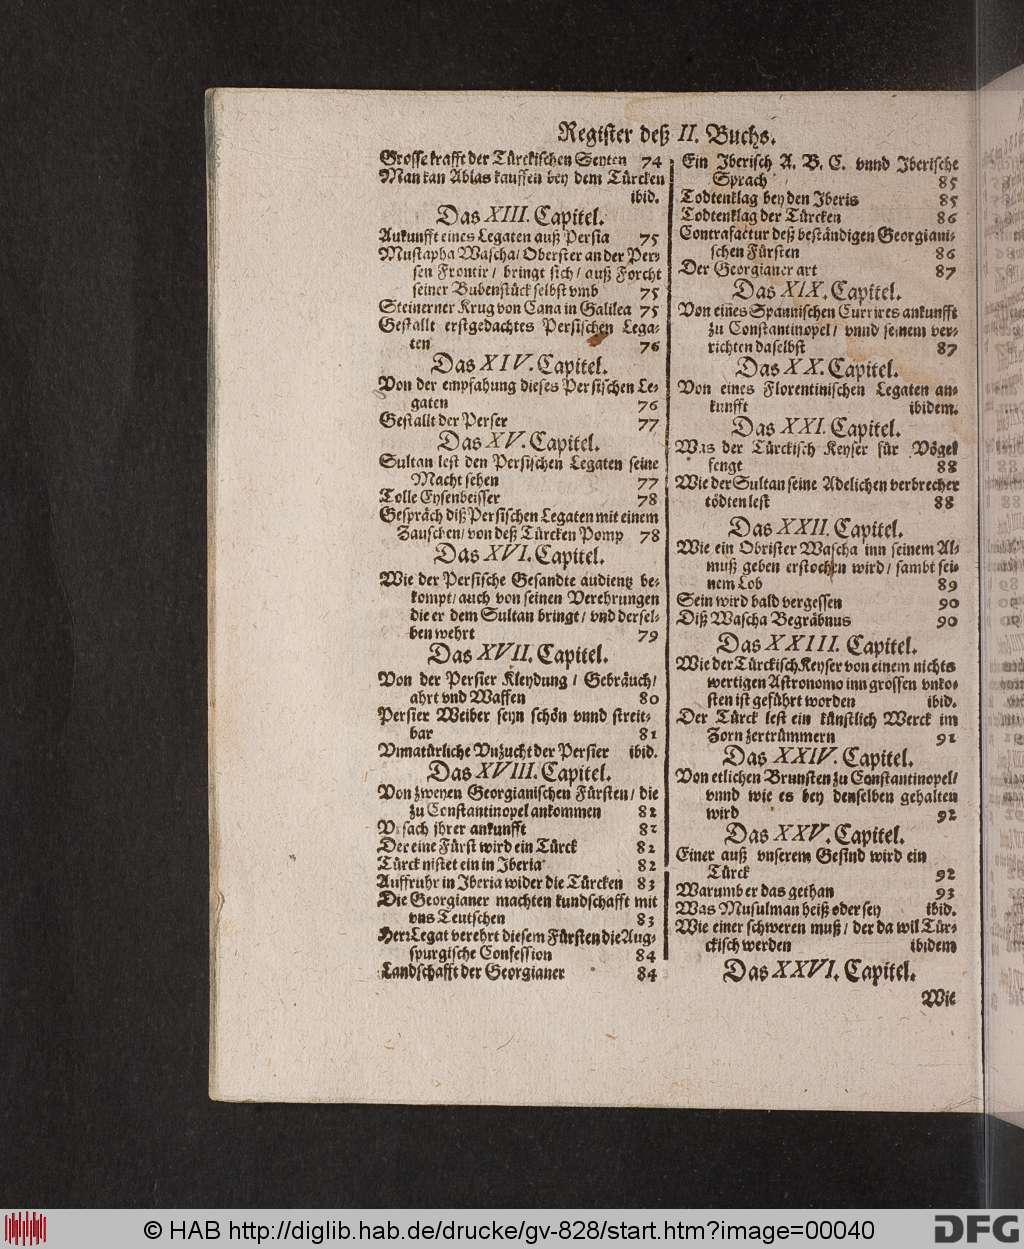 Register deß II. Buchs.
Grosse krafft der Türckischen Seyten 74
Man kan Ablas kauffen bey dem Türcken
ibid.
Das XIII. Capitel.
Ankunfft eines Legaten auß Persia 75
Mustapha Wascha/ Oberster an der Per-
sen Frontir/ bringt sich/ auß Forcht
seiner Bubenstück selbst vmb 75
Steinerner Krug von Cana in Galilea 75
Gestallt erstgedachtes Persischen Lega-
ten 76
Das XIV. Capitel.
Von der empfahung dieses Persischen Le-
gaten 76
Gestallt der Perser 77
Das XV. Capitel.
Sultan lest den Persischen Legaten seine
Macht sehen 77
Tolle Eysenbeisser 78
Gespräch diß Persischen Legaten mit einem
Zauschen/ von deß Türcken Pomp 78
Das XVI. Capitel.
Wie der Persische Gesandte audientz be-
kompt/ auch von seinen Verehrungen
die er dem Sultan bringt/ vnd dersel-
ben wehrt 79
Das XVII. Capitel.
Von der Persier Kleydung/ Gebräuch/
ahrt vnd Waffen 80
Persier Weiber seyn schön vnnd streit-
bar 81
Vnnatürliche Vnzucht der Persier ibid.
Das XVIII. Capitel.
Von zweyen Georgianischen Fürsten/ die
zu Constantinopel ankommen 82
Vrsach jhrer ankunfft 82
Der eine Fürst wird ein Türck 82
Türck nistet ein in Iberia 82
Auffruhr in Iberia wider die Türcken 83
Die Georgianer machten kundschafft mit
vns Teutschen 83
Herr Legat verehrt diesem Fürsten die Aug-
spurgische Confession 84
Landschafft der Georgianer 84
Ein Iberisch A. B. C. vnnd Iberische
Sprach 85
Todtenklag bey den Iberis 85
Todtenklag der Türcken 86
Contrafactur deß beständigen Georgiani-
schen Fürsten 86
Der Georgianer art 87
Das XIX. Capitel.
Von eines Spannischen Currires ankunfft
zu Constantinopel/ vnnd seinem ver-
richten daselbst 87
Das XX. Capitel.
Von eines Florentinischen Legaten an-
kunfft ibidem.
Das XXI. Capitel.
Was der Türckisch Keyser für Vögel
fengt 88
Wie der Sultan seine Adelichen verbrecher
tödten lest 88
Das XXII. Capitel.
Wie ein Obrister Wascha inn seinem Al-
muß geben erstochen wird/ sambt sei-
nem Lob 89
Sein wird bald vergessen 90
Diß Wascha Begräbnus 90
Das XXIII. Capitel.
Wie der Türckisch Keyser von einem nichts
wertigen Astronomo inn grossen vnko-
sten ist geführt worden ibid.
Der Türck lest ein künstlich Werck im
Zorn zertrümmern 91
Das XXIV. Capitel.
Von etlichen Brunsten zu Constantinopel/
vnnd wie es bey denselben gehalten
wird 92
Das XXV. Capitel.
Einer auß vnserem Gesind wird ein
Türck 92
Warumb er das gethan 93
Was Musulman heiß oder sey ibid.
Wie einer schweren muß/ der da wil Tür-
ckisch werden ibidem
Das XXVI. Capitel.
Wie
© HAB http://diglib.hab.de/drucke/gv-828/start.htm?image=00040
DFG